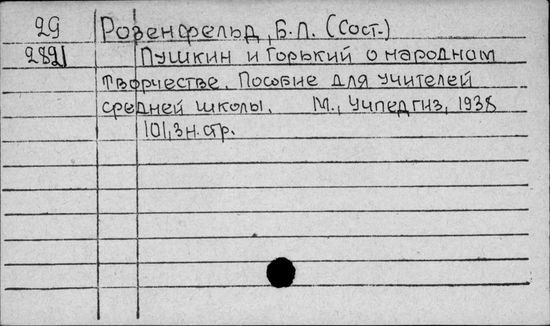 29 Розенфельд, Б.Л. (Сост.)
2821 Пушкин и Горький о народном
творчестве. Пособие для учителей
средней школы. М., Учпедгиз, 1938
101,3 н. стр.